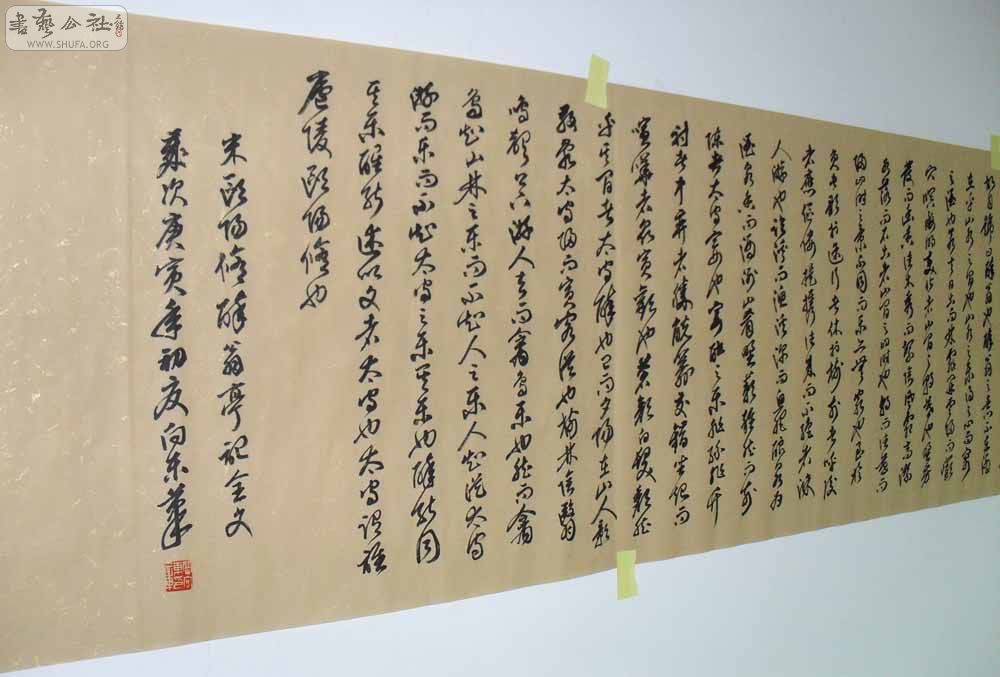 書藝公社
WWW.SHUFA.ORG
故自號曰醉翁也醉翁之意不在酒
在乎山水之間也山水之樂得之心而寓
之酒也若夫日出而林霏開雲歸而巖
穴暝晦明變化者山間之朝暮也野芳
發而幽香佳木秀而繁陰風霜高潔
水落而石出者山間之四時也朝而往暮而
歸四時之景不同而樂亦無窮也至於
負者歌於途行者休於樹前者呼後
者應傴僂提攜往來而不絕者滁
人遊也臨溪而漁溪深而魚肥釀泉為
酒泉香而酒洌山肴野蔌雜然而前
陳者太守宴也宴酣之樂非絲非竹
射者中弈者勝觥籌交錯坐起而
喧嘩者衆賓歡也蒼顏白髮頹然
乎其間者太守醉也已而夕陽在山人影
散亂太守歸而賓客從也樹林陰翳
鳴聲上下遊人去而禽鳥樂也然而禽
鳥知山林之樂而不知人之樂人知從太守
遊而樂而不知太守之樂其樂也醉能同
其樂醒能述以文者太守也太守謂誰
廬陵歐陽脩也
宋歐陽脩醉翁亭記全文
歲次庚寅年初夏向東筆